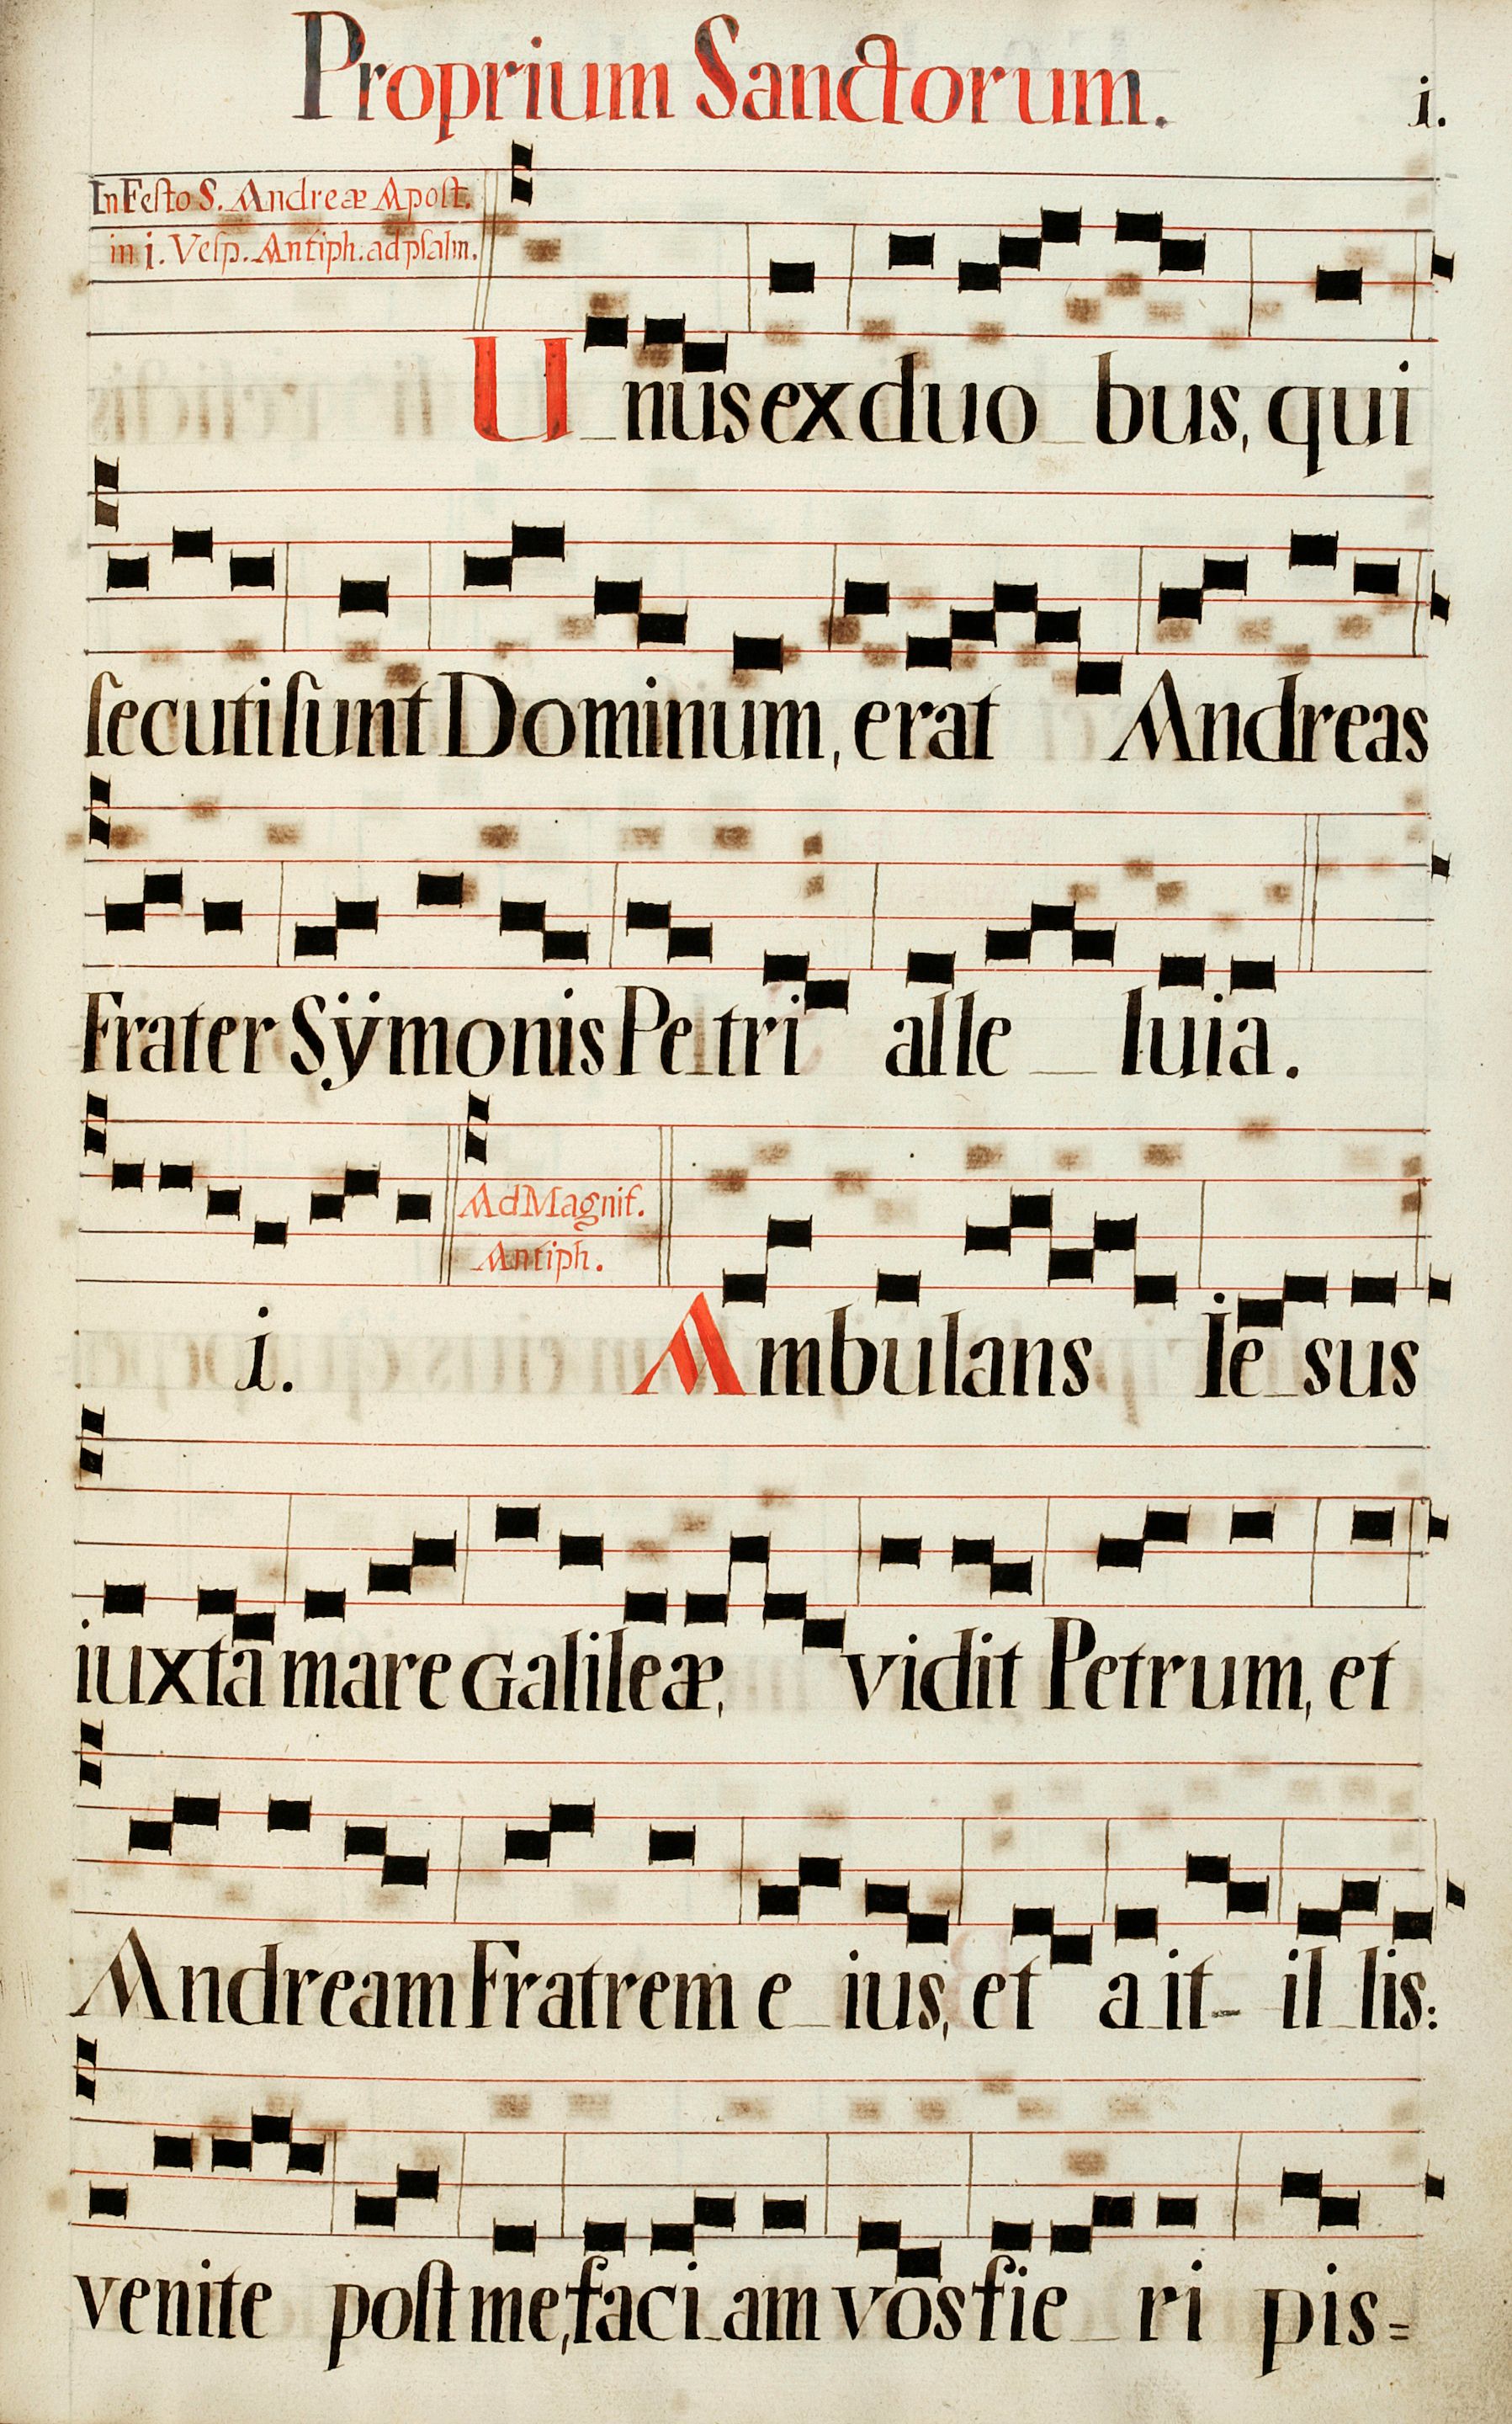 Proprium Sanctorum.
i.
In Feſto S. Andreæ Apoſt.
in i. Veſp. Antiph. ad pſalm.
U_nus ex duo_bus, qui
ſecuti ſunt Dominum, erat Andreas
Frater Sÿmonis Pe_tri alle_luia.
Ad Magnif.
Antiph.
i. Ambulans Ie_sus
iuxta mare Galileæ, vidit Petrum, et
Andream Fratrem e_ius, et a_it- il_lis:
venite poſt me, faci_am vos fie_ri pis=